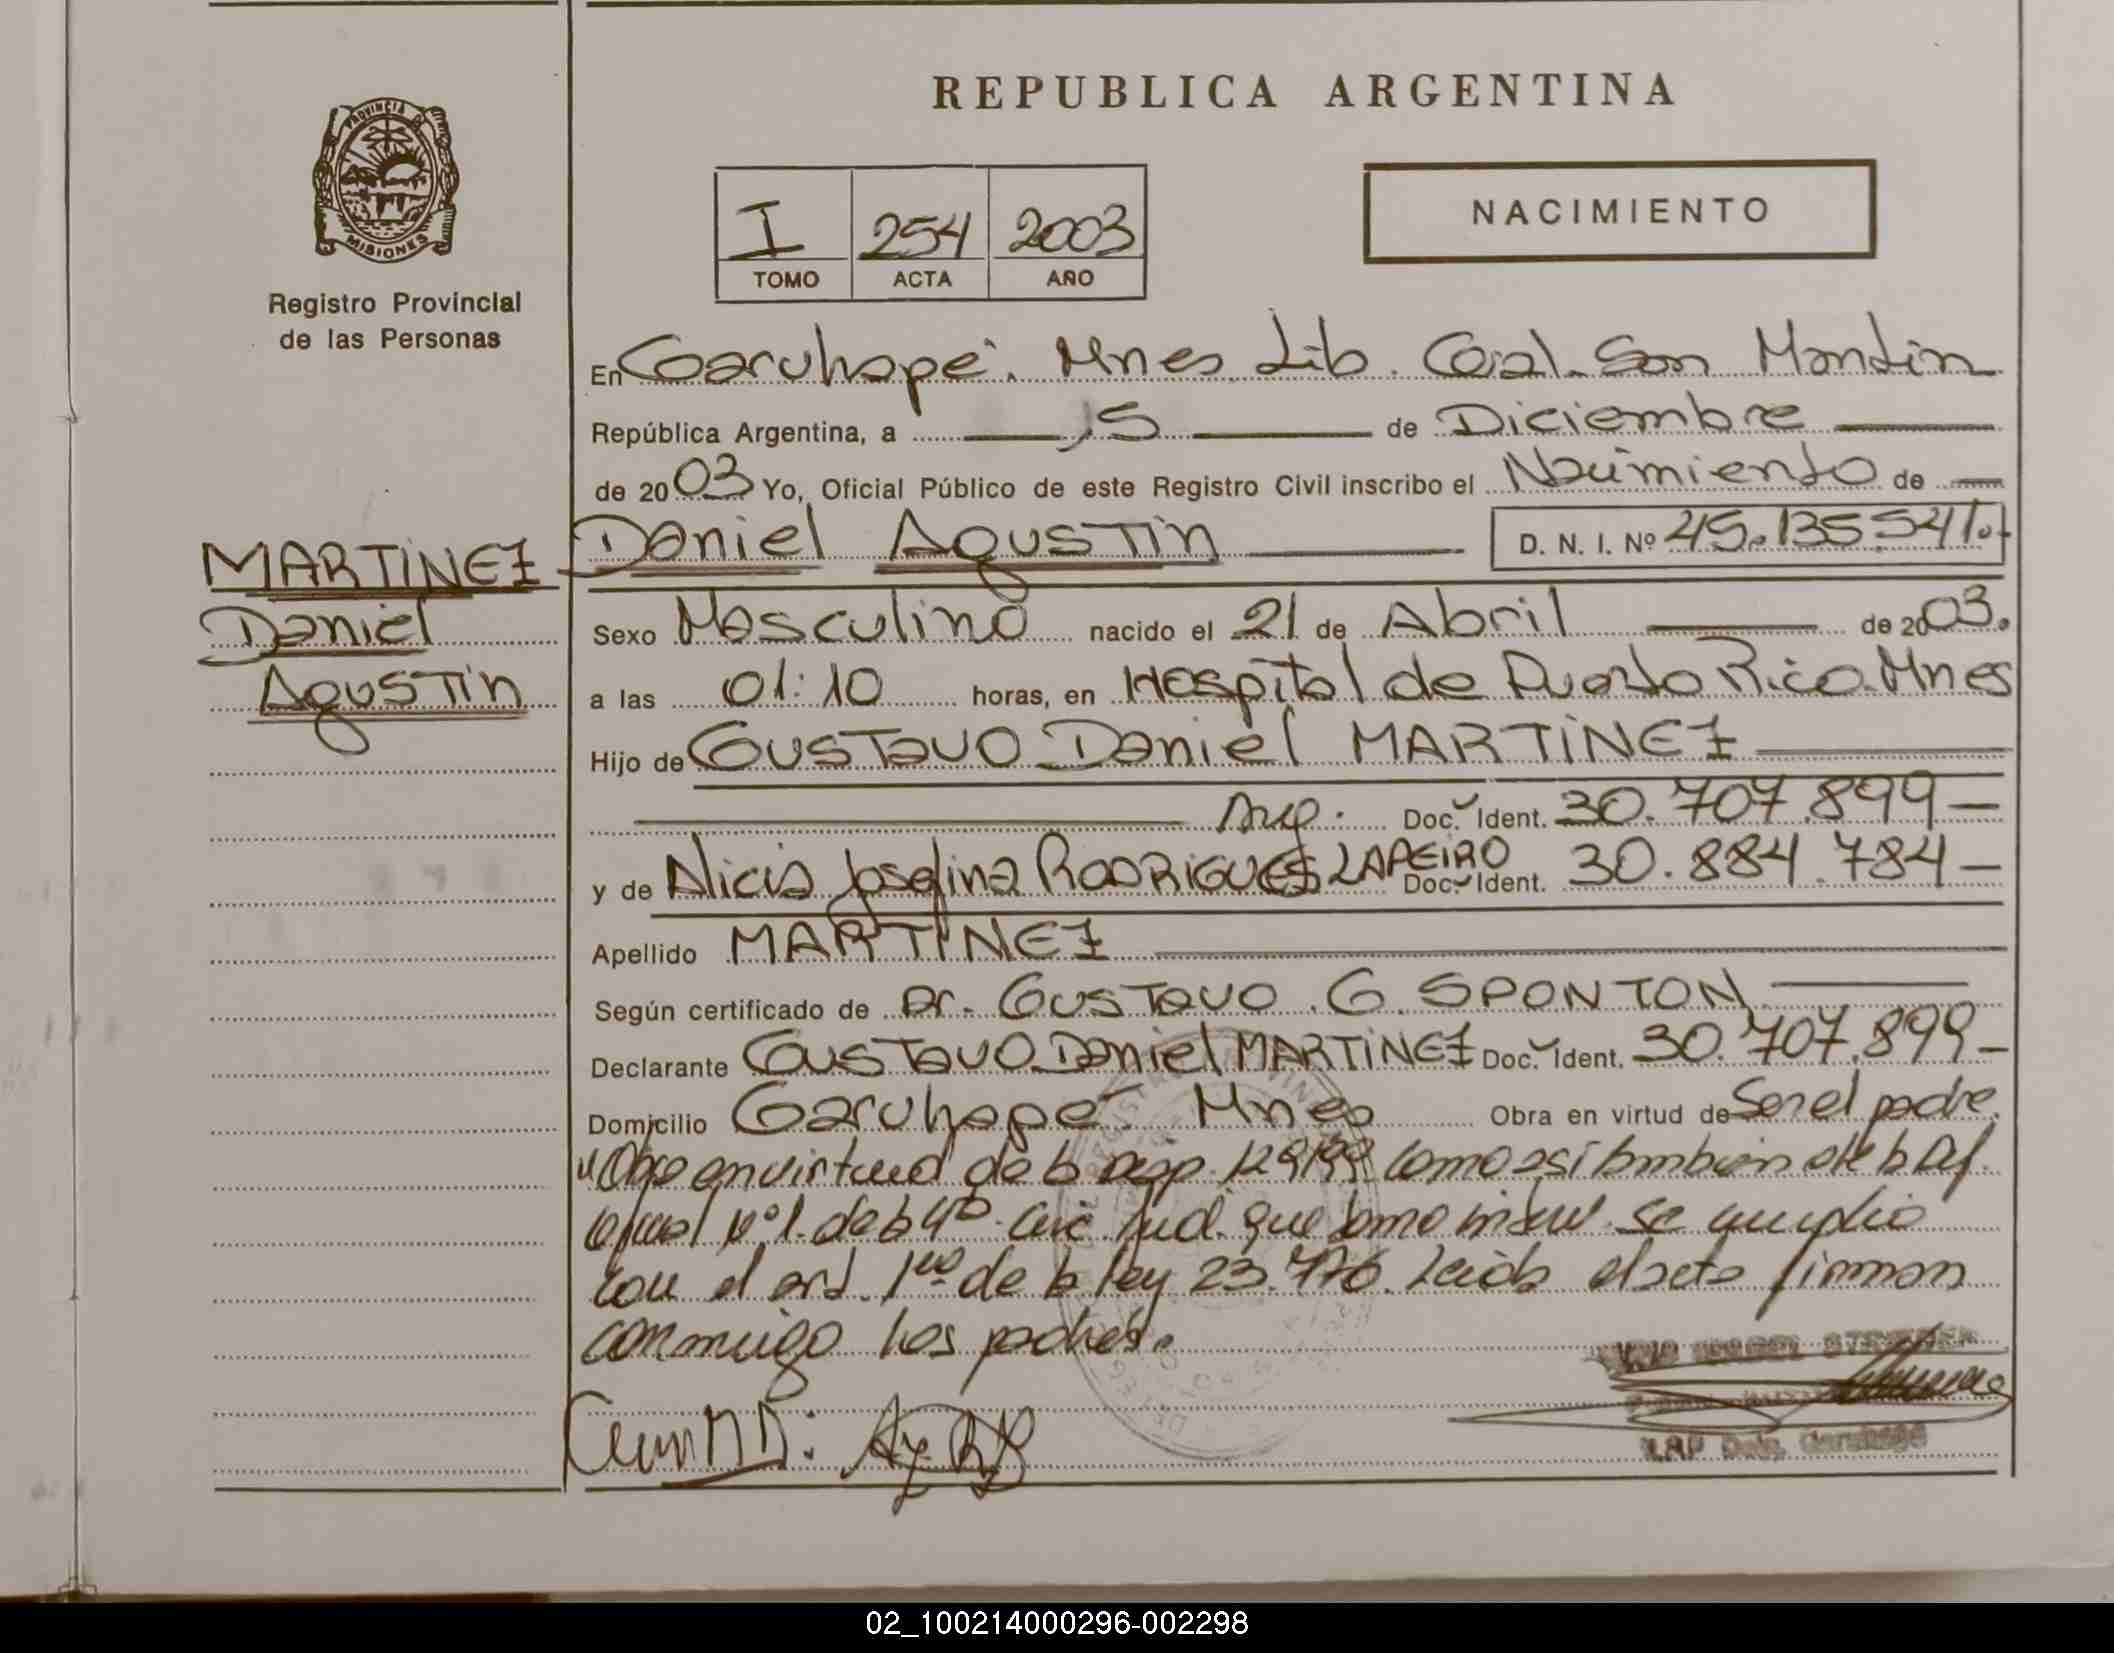 REPUBLICA ARGENTINA
PROVINCIA DE
MISIONES
Registro Provincial
de las Personas
I 254 2003
TOMO ACTA AÑO
NACIMIENTO
En Garuhape. Mnes Lib. Gral. San Martin
República Argentina, a 15 de Diciembre
de 2003 Yo, Oficial Público de este Registro Civil inscribo el Nacimiento de
MARTINEZ Daniel Agustin D. N. I. Nº 45.135.541.
Daniel
Agustin
Sexo Masculino nacido el 21 de Abril de 2003.
a las 01:10 horas, en Hospital de Puerto Rico. Mnes
Hijo de Gustavo Daniel MARTINEZ
Arg. Doc. Ident. 30.707.899
y de Alicia Josefina RODRIGUES LAPEIRO Doc. Ident. 30.884.784
Apellido MARTINEZ
Según certificado de Dr. Gustavo G. SPONTON
Declarante Gustavo Daniel MARTINEZ Doc. Ident. 30.707.899
Domicilio Garuhape. Mnes Obra en virtud de Ser el padre.
"Obra en virtud de la Disp. 129/99 como asi tambien de la Def.
Nº 1. de la 4ta. Circ. Jud. que se cumplio
con el art. 1ro. de la ley 23.776. Leida el acta firman
conmigo los padres.
02_100214000296-002298